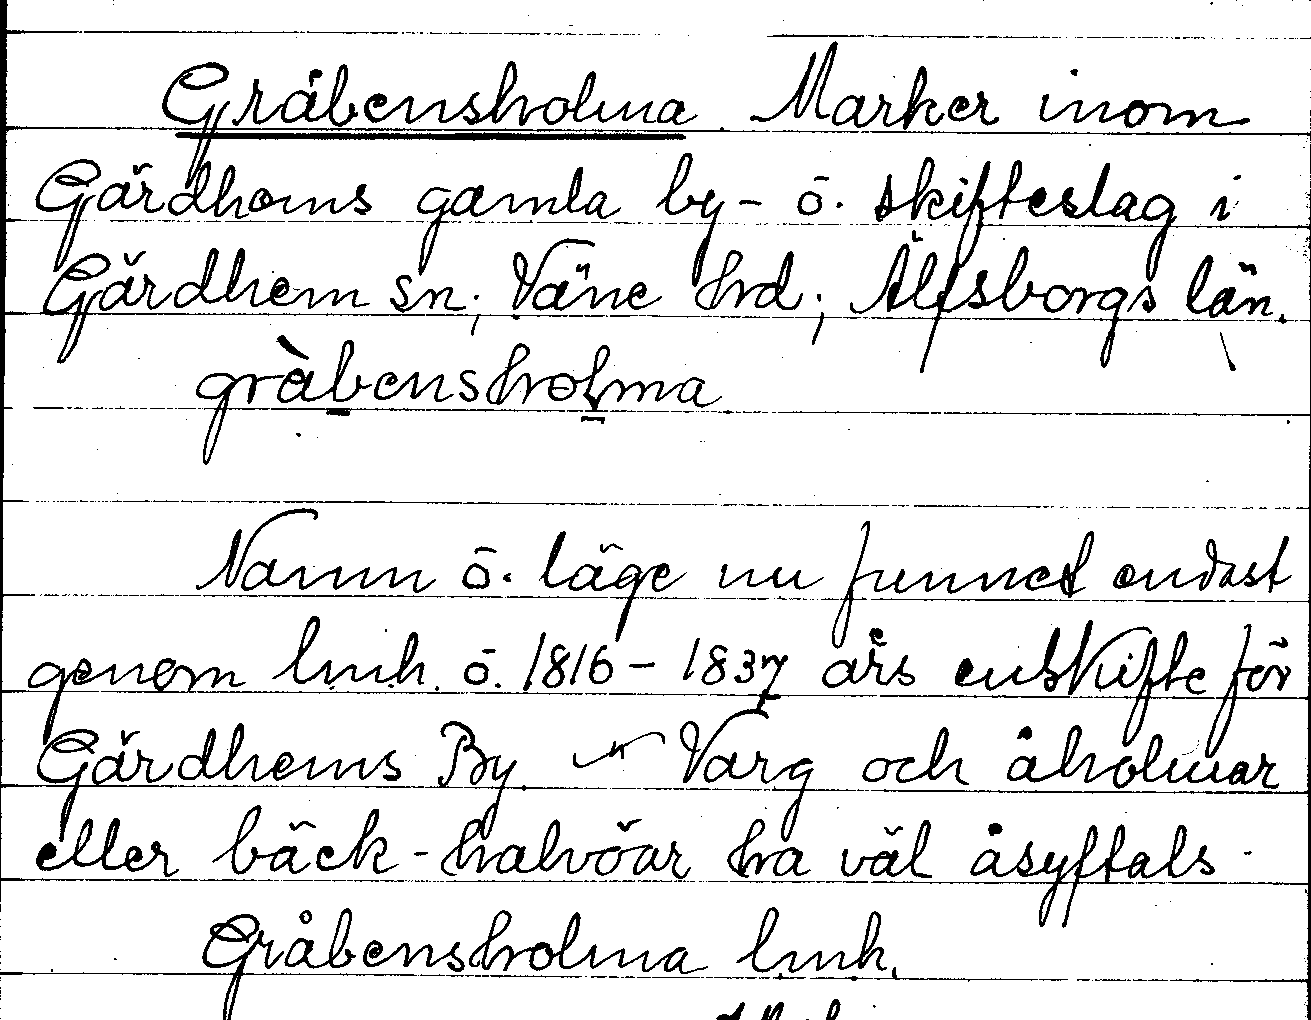 Gråbensholma. Marker inom
Gärdhems gamla by- o. skifteslag i
Gärdhem sn; Väne hd; Älfsborgs län.
gràbensholma.
Namn o. läge nu funnet endast
genom lmh. o. 1816 - 1837 års enskifte för
Gärdhems By. Varg och åholmar
eller bäck-halvöar ha väl åsyftats.
Gråbensholma lmh.